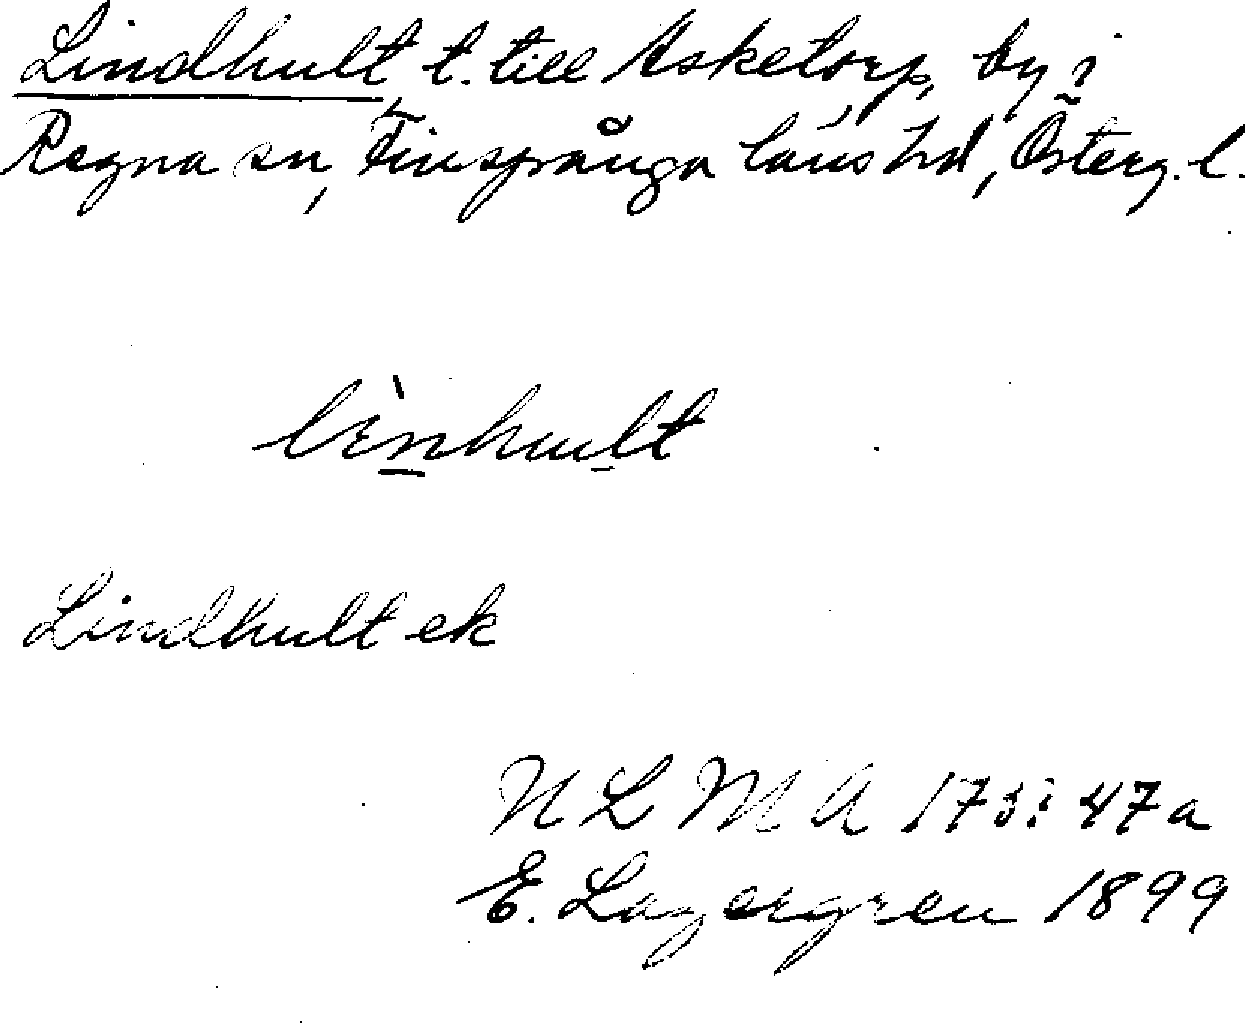 Lindhult, t. till Asketorp, by i
Regna sn, Finspånga läns hd, Österg. l.
lìnhult
Lindhult ek
NLMA 173:47a
E. Lagergren 1899